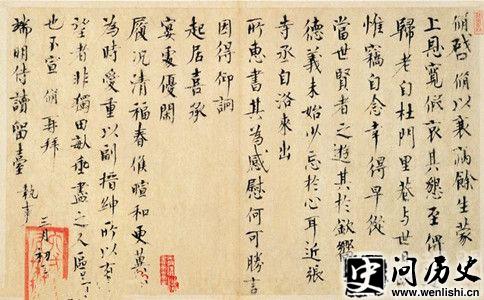 脩啓脩以衰病餘生蒙
上恩寬假哀其懇至俾
歸老自杜門里巷与世
惟竊自念幸得早從
當世賢者之遊其於欽嚮
德義未始少忘於心耳近張
寺丞自洛來出
所惠書其為感慰何可勝言
因得仰詢
起居喜承
宴處優閑
履況清福春候暄和更冀
為時愛重以副搢紳所以有
望者非獨田畝垂盡之人區區
也不宣脩再拜
端明侍讀留臺 執事
三月初
史问历史
www.wenlishi.cn
wenlishi.cn